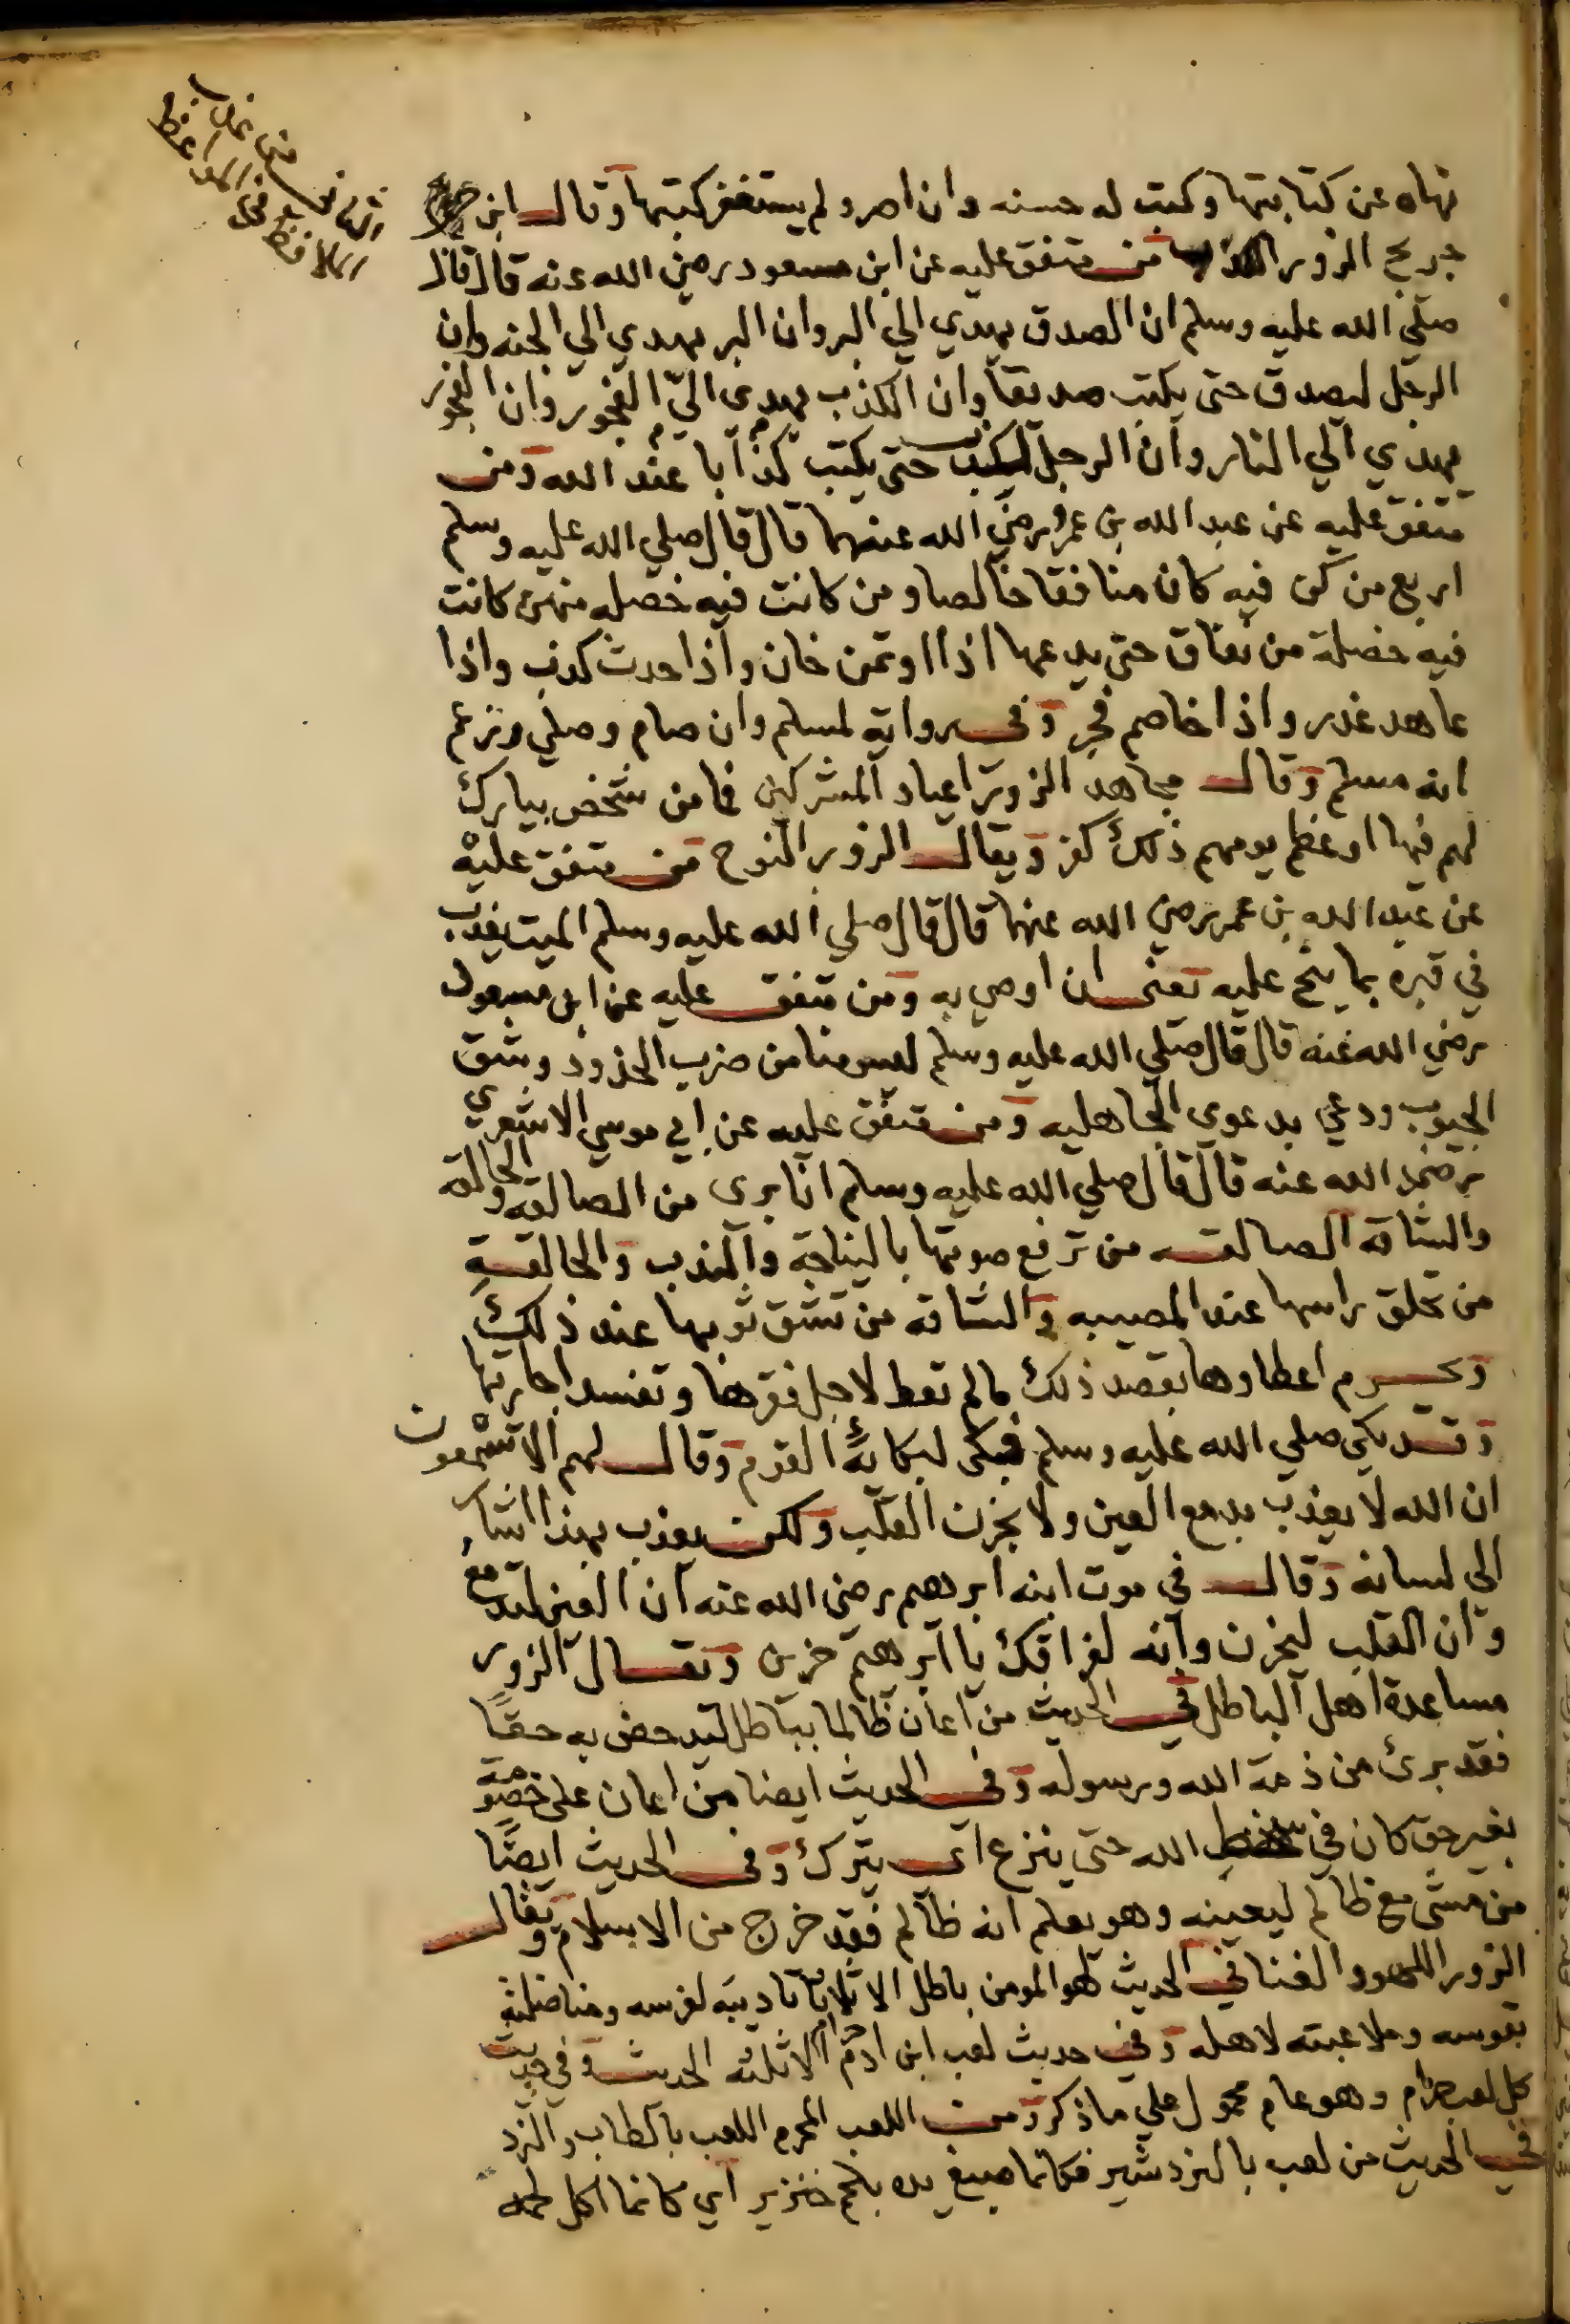 الثامن من عذاب
اللافظ في المواعظ
نهاه عن كتابتها وكتبت له حسنه وان اصر ولم يستغفر كتبها وقال ابن
جريج الزور الكذب من متفق عليه عن ابن مسعود رضي الله عنه قال قال
صلي الله عليه وسلم ان الصدق يهدي الي البر وان البر يهدي الي الجنه وان
الرجل ليصدق حتى يكتب صديقا وان الكذب يهدى الي الفجور وان الفجور
يهدي الي النار وان الرجل ليكذب حتى يكتب كذابا عند الله ومن
متفق عليه عن عبد الله بن عمرو رضي الله عنهما قال قال صلي الله عليه وسلم
اربع من كن فيه كان منافقا خالصا ومن كانت فيه خصله منهن كانت
فيه خصلة من نفاق حتى يدعها اذا اوتمن خان واذا حدث كذب واذا
عاهد غدر واذا خاصم فجر وفي رواية لمسلم وان صام وصلي وزعم
انه مسلم وقال مجاهد الزور اعياد المشركين فما من شخص يبارك
لهم فيها او عظم يومهم ذلك كفر ويقال الزور النوح من متفق عليه
عن عبد الله بن عمر رضي الله عنهما قال قال صلي الله عليه وسلم الميت يعذب
في قبره بما ينح عليه تعنى ان اوصي به ومن متفق عليه عن ابن مسعود
رضي الله عنه قال قال صلي الله عليه وسلم ليس منا من ضرب الخدود وشق
الجيوب ودعي بدعوى الجاهليه ومن متفق عليه عن ابي موسي الاشعري
رضي الله عنه قال قال صلي الله عليه وسلم انا بري من الصالقه والحالقة
والشاقه الصالقه من ترفع صوتها بالنياحة والندب والحالقة
من تحلق راسها عند المصيبه والشاقه من تشق ثوبها عند ذلك
ويحرم اعطاوها بقصد ذلك مالم تعط لاجل فقرها وتفسد اجارتها
وقد بكى صلي الله عليه وسلم فبكى لبكائه القوم وقال لهم الا تسمعون
ان الله لا يعذب بدمع العين ولا بحزن القلب ولكن يعذب بهذا اشار
الي لسانه وقال في موت ابنه ابرهيم رضي الله عنه ان العين لتدمع
وان القلب ليحزن وانه لفراقك يا ابرهيم حزين ويقال الزور
مساعدة اهل الباطل في الحديث من اعان ظالما بباطل ليدحض به حقا
فقد برئ من ذمة الله ورسوله وفي الحديث ايضا من اعان على خصومة
بغير حق كان في سخط الله حتى ينزع اي يترك وفي الحديث ايضا
من مشى مع ظالم ليعينه وهو يعلم انه ظالم فقد خرج من الاسلام ويقال
الزور اللهو والغنا في الحديث لهو المومن باطل الا ثلاثا تاديبه لفرسه ومناضلته
بقوسه وملاعبته لاهله وفي حديث لعب ابن ادم حرام الا ثلثه الحديث وفي حديث
كل لعب حرام وهو عام محمول علي ما ذكر ومن اللعب المحرم اللعب بالطاب والنرد
في الحديث من لعب بالنردشير فكانما صبغ يده بلحم خنزير اي كانما اكل لحمه